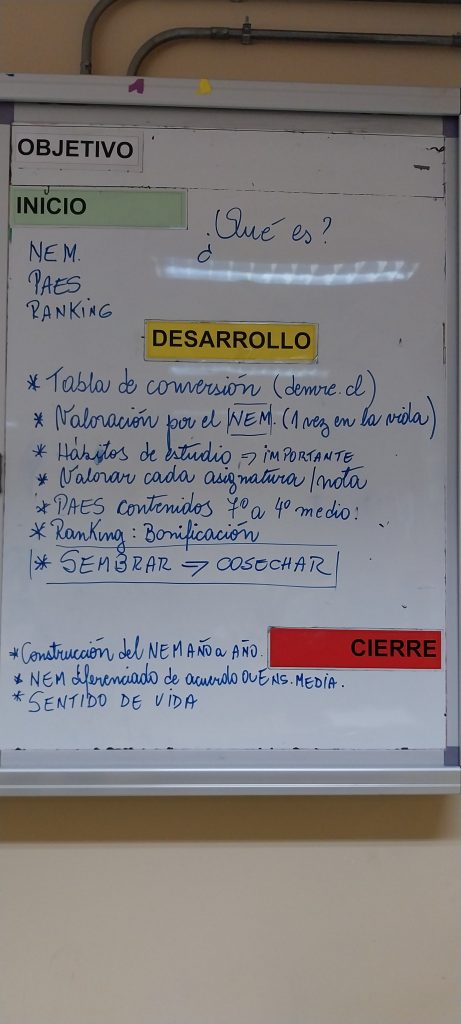 OBJETIVO
INICIO
¿Qué es?
NEM.
PAES
RANKING
DESARROLLO
* Tabla de conversión (demre.cl)
* Valoración por el NEM. (1 vez en la vida)
* Hábitos de estudio => IMPORTANTE
* Valorar cada asignatura/nota
* PAES contenidos 7º a 4º medio.
* Ranking: Bonificación
* SEMBRAR => COSECHAR
CIERRE
* Construcción del NEM AÑO a AÑO.
* NEM diferenciado de acuerdo ENS. MEDIA.
* SENTIDO DE VIDA